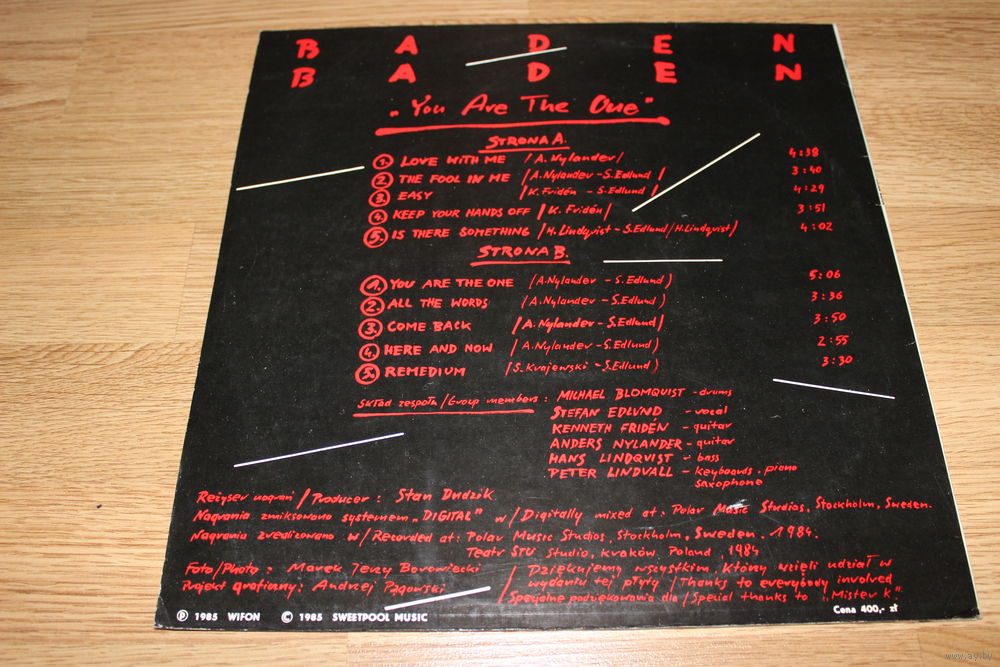 BADEN
BADEN
„You Are The One"
STRONA A.
1. LOVE WITH ME /A. Nylander/ 4:38
2. THE FOOL IN ME /A. Nylander - S. Edlund/ 3:40
3. EASY /K. Fridén - S. Edlund/ 4:29
4. KEEP YOUR HANDS OFF /K. Fridén/ 3:51
5. IS THERE SOMETHING /H. Lindqvist - S. Edlund/H. Lindqvist/ 4:02
STRONA B.
1. YOU ARE THE ONE /A. Nylander - S. Edlund) 5:06
2. ALL THE WORDS /A. Nylander - S. Edlund) 3:36
3. COME BACK /A. Nylander - S. Edlund/ 3:50
4. HERE AND NOW /A. Nylander - S. Edlund) 2:55
5. REMEDIUM /S. Krajewski - S. Edlund) 3:30
Skład zespołu/Group members: MICHAEL BLOMQUIST - drums
STEFAN EDLUND - vocal
KENNETH FRIDÉN - guitar
ANDERS NYLANDER - guitar
HANS LINDQVIST - bass
PETER LINDVALL - keyboards, piano
saxophone
Reżyser nagrań / Producer: Stan Dudzik
Nagrania zmiksowano systemem „DIGITAL" w/Digitally mixed at: Polar Music Studios, Stockholm, Sweden.
Nagrania zrealizowano w/Recorded at: Polar Music Studios, Stockholm, Sweden. 1984.
Teatr STU Studio, Kraków, Poland, 1984
Foto/Photo: Marek Jerzy Borowiecki / Dziękujemy wszystkim, którzy wzięli udział w
Projekt graficzny: Andrzej Pągowski / wydaniu tej płyty / Thanks to everybody involved
/Specjalne podziękowania dla / Special thanks to „Mister K".
Ⓟ 1985 WIFON © 1985 SWEETPOOL MUSIC Cena 400,- zł
www.ay.by